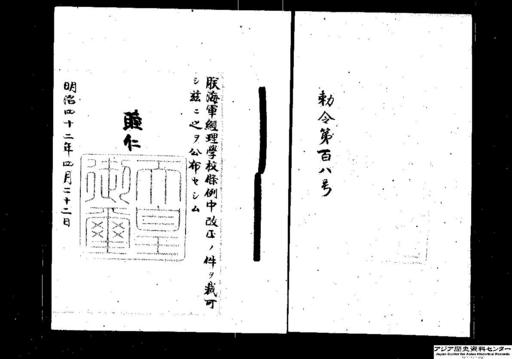 勅令第百八号
朕海軍經理学校條例中改正ノ件ヲ裁可
シ茲ニ之ヲ公布セシム
睦仁
天皇
御璽
明治四十二年四月二十二日
アジア歴史資料センター
Japan Center for Asian Historical Records